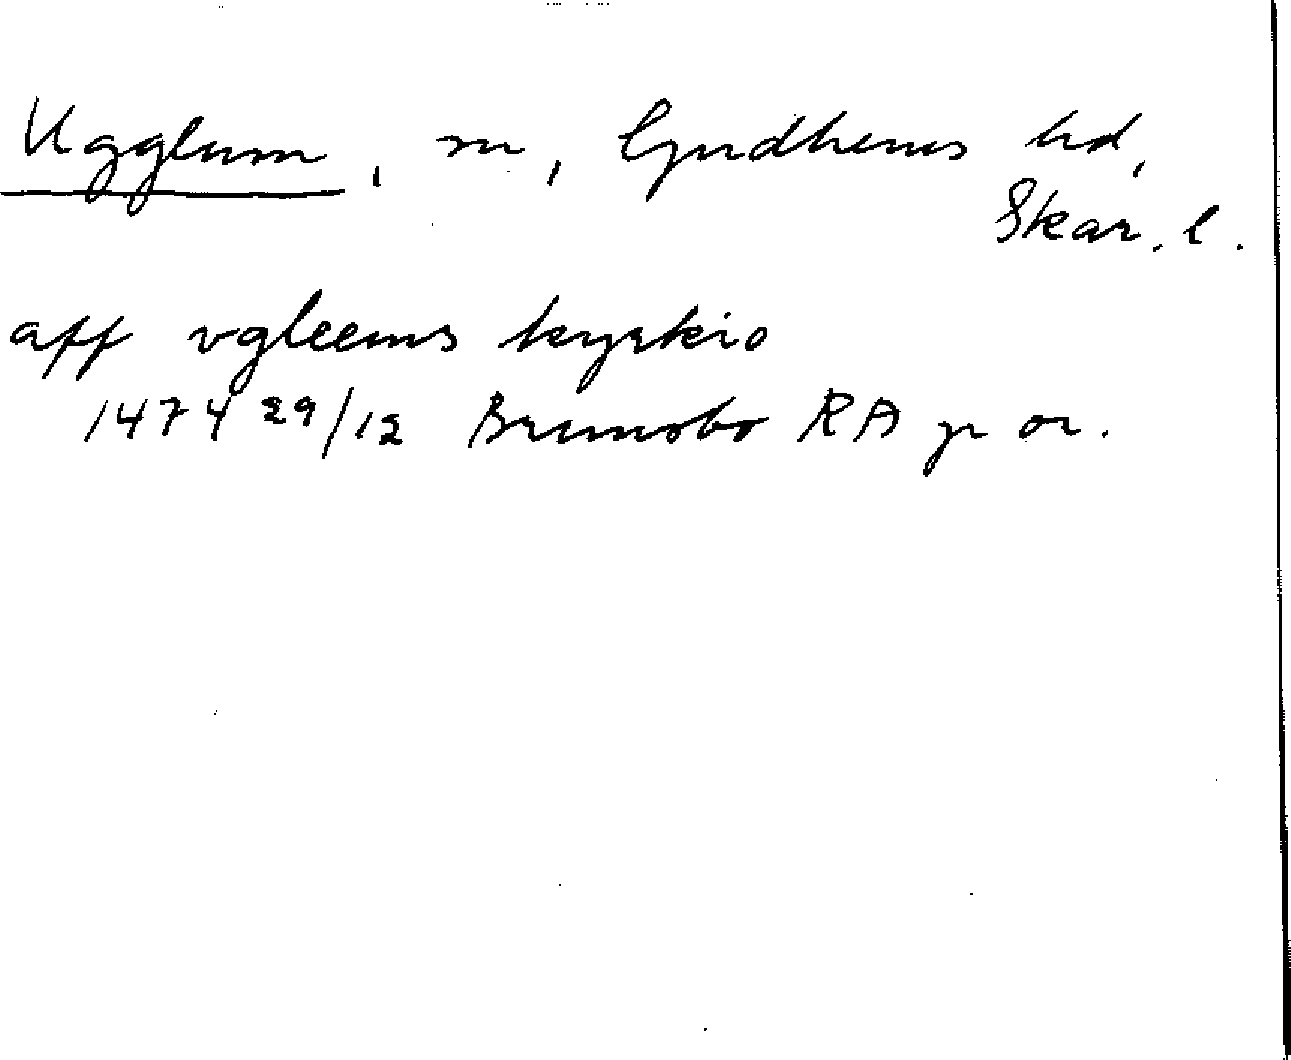 Ugglum, sn, Gudhems hd,
Skar. l.
aff vgleems kyrkio
1474 29/12 Brunsbo RA p or.